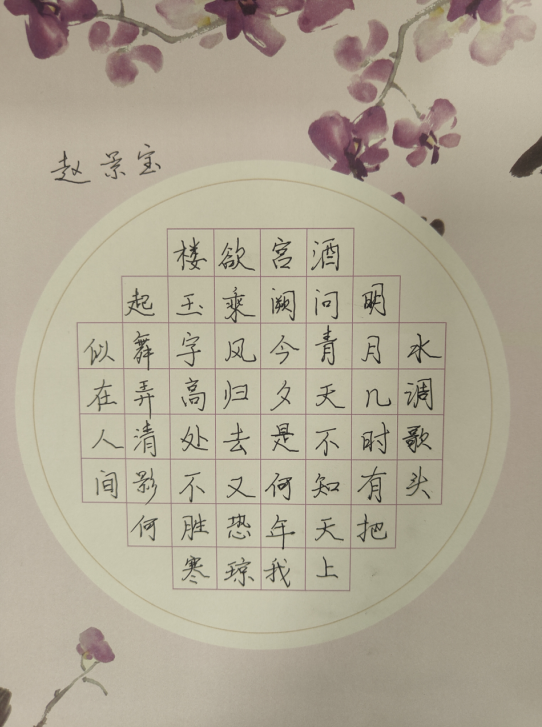 赵景宝
水调歌头
明月几时有把
酒问青天不知天上
宫阙今夕是何年我
欲乘风归去又恐琼
楼玉字高处不胜寒
起舞弄清影何
似在人间